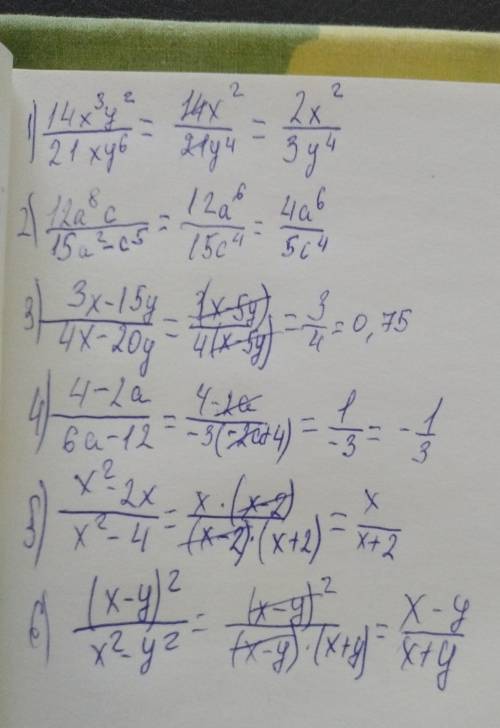 1) 14x³y²/21xy⁶ = 14x²/21y⁴ = 2x²/3y⁴
2) 12a⁸c/15a²-c⁵ = 12a⁶/15c⁴ = 4a⁶/5c⁴
3) 3x-15y/4x-20y = 3(x-5y)/4(x-5y) = 3/4 = 0,75
4) 4-2a/6a-12 = 4-2a/-3(-2a+4) = 1/-3 = -1/3
5) x²-2x/x²-4 = x·(x-2)/(x-2)·(x+2) = x/x+2
6) (x-y)²/x²-y² = (x-y)²/(x-y)·(x+y) = x-y/x+y